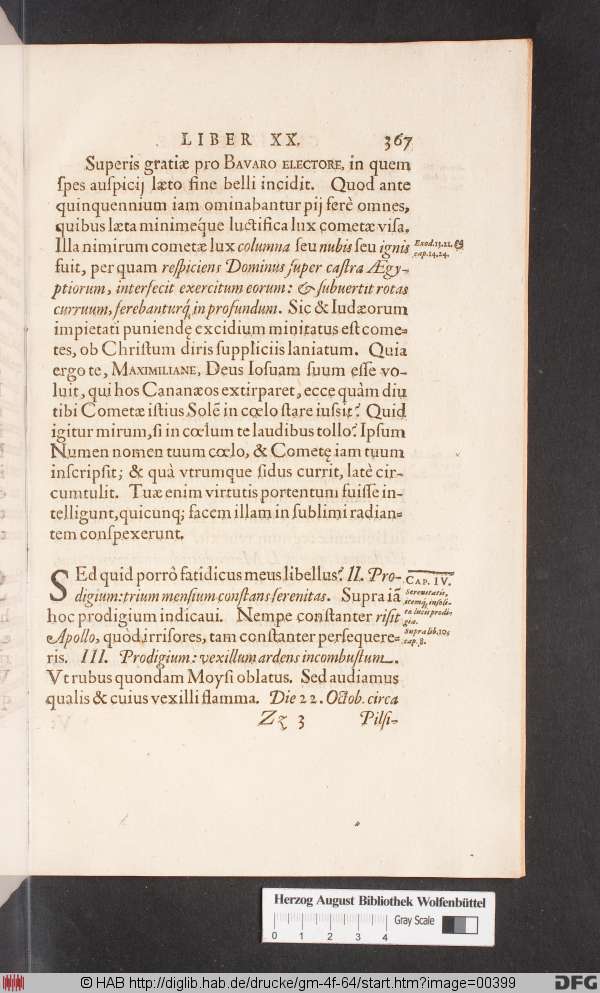 LIBER XX. 367
Superis gratiæ pro BAVARO ELECTORE, in quem
ſpes auſpicij læto fine belli incidit. Quod ante
quinquennium iam ominabantur pij ferè omnes,
quibus læta minimeq́ue luctifica lux cometæ viſa.
Illa nimirum cometæ lux columna ſeu nubis ſeu ignis
Exod. 13.21. &
cap. 14.24.
fuit, per quam reſpiciens Dominus ſuper caſtra Ægy-
ptiorum, interfecit exercitum eorum: & ſubuertit rotas
curruum, ferebanturq́; in profundum. Sic & Iudæorum
impietati puniendę excidium minitatus eſt come-
tes, ob Chriſtum diris ſuppliciis laniatum. Quia
ergo te, MAXIMILIANE, Deus Ioſuam ſuum eſſe vo-
luit, qui hos Cananæos extirparet, ecce quàm diu
tibi Cometæ iſtius Solẽ in cœlo ſtare iuſsit? Quid
igitur mirum, ſi in cœlum te laudibus tollo? Ipſum
Numen nomen tuum cœlo, & Cometę iam tuum
inſcripſit; & quà vtrumque ſidus currit, latè cir-
cumtulit. Tuæ enim virtutis portentum fuiſſe in-
telligunt, quicunq; facem illam in ſublimi radian-
tem conſpexerunt.
CAP. IV.
SEd quid porrò fatidicus meus libellus? II. Pro-
digium: trium menſium conſtans ſerenitas. Supra iã
Serenitatis,
itemq́, inſoli-
tæ lucis prodi-
gia.
hoc prodigium indicaui. Nempe conſtanter riſit
Apollo, quòd, irriſores, tam conſtanter perſequere-
Supra lib. 10.
cap. 8.
ris. III. Prodigium: vexillum ardens incombuſtum.
Vt rubus quondam Moyſi oblatus. Sed audiamus
qualis & cuius vexilli flamma. Die 22. Octob. circa
Zz 3 Pilſi-
Herzog August Bibliothek Wolfenbüttel
Gray Scale
0 1 2 3 4
© HAB http://diglib.hab.de/drucke/gm-4f-64/start.htm?image=00399
DFG